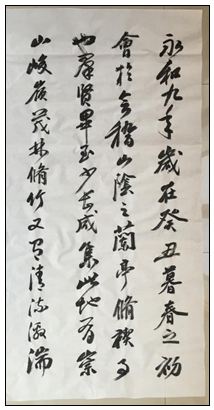 永和九年歲在癸丑暮春之初
會於會稽山陰之蘭亭脩禊事
也群賢畢至少長咸集此地有崇
山峻嶺茂林脩竹又有清流激湍